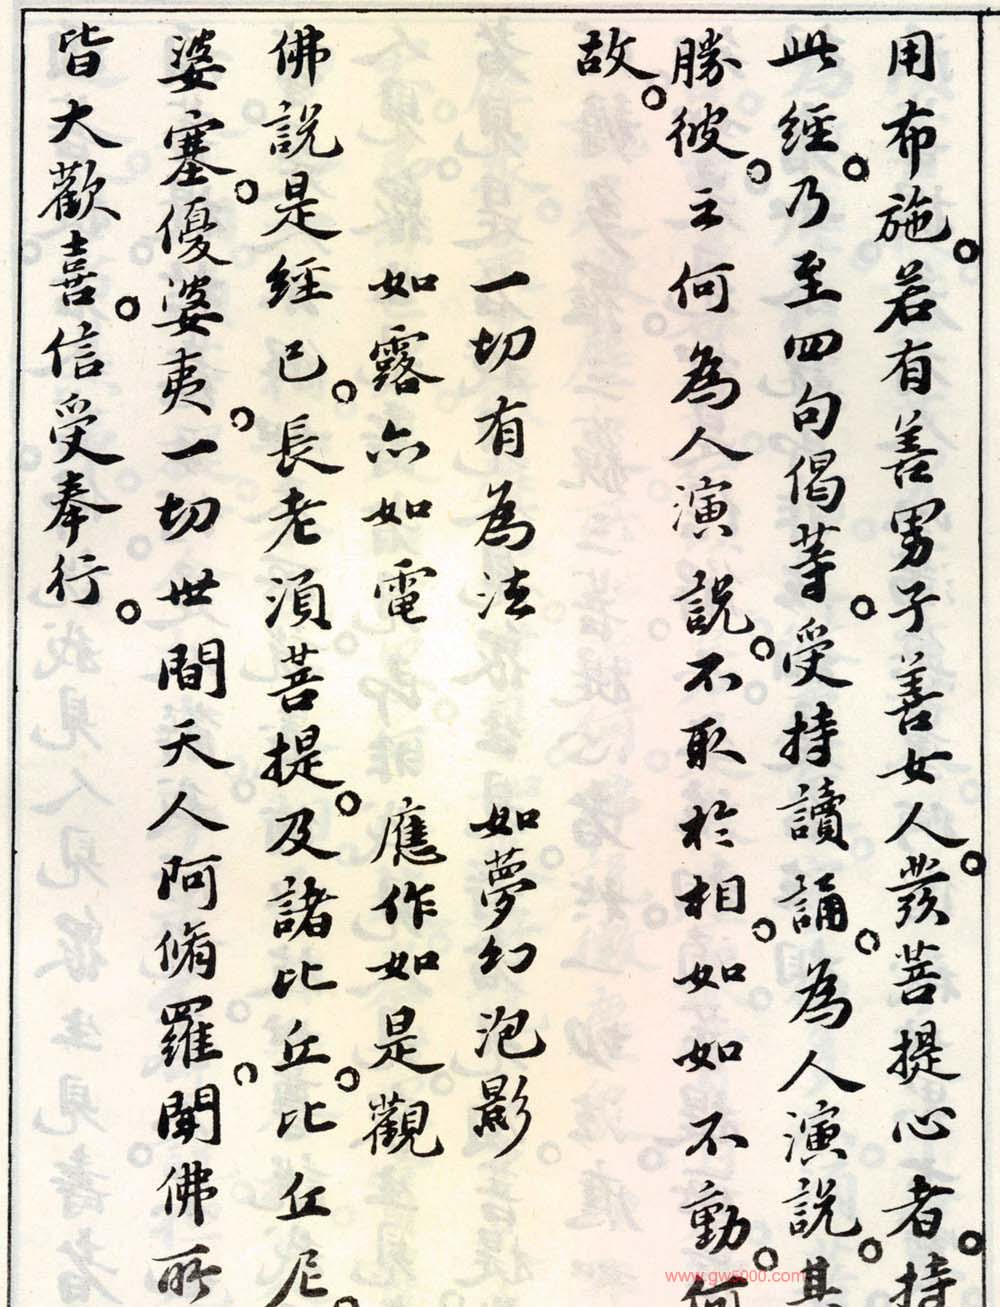 用布施。若有善男子善女人。發菩提心者。持
此經。乃至四句偈等。受持讀誦。為人演說。其
勝彼。云何為人演說。不取於相。如如不動。何
故。
一切有為法 如夢幻泡影
如露亦如電 應作如是觀
佛說是經已。長老須菩提。及諸比丘。比丘尼。
婆塞。優婆夷。一切世間天人阿脩羅。聞佛所
皆大歡喜。信受奉行。
www.gw5000.com